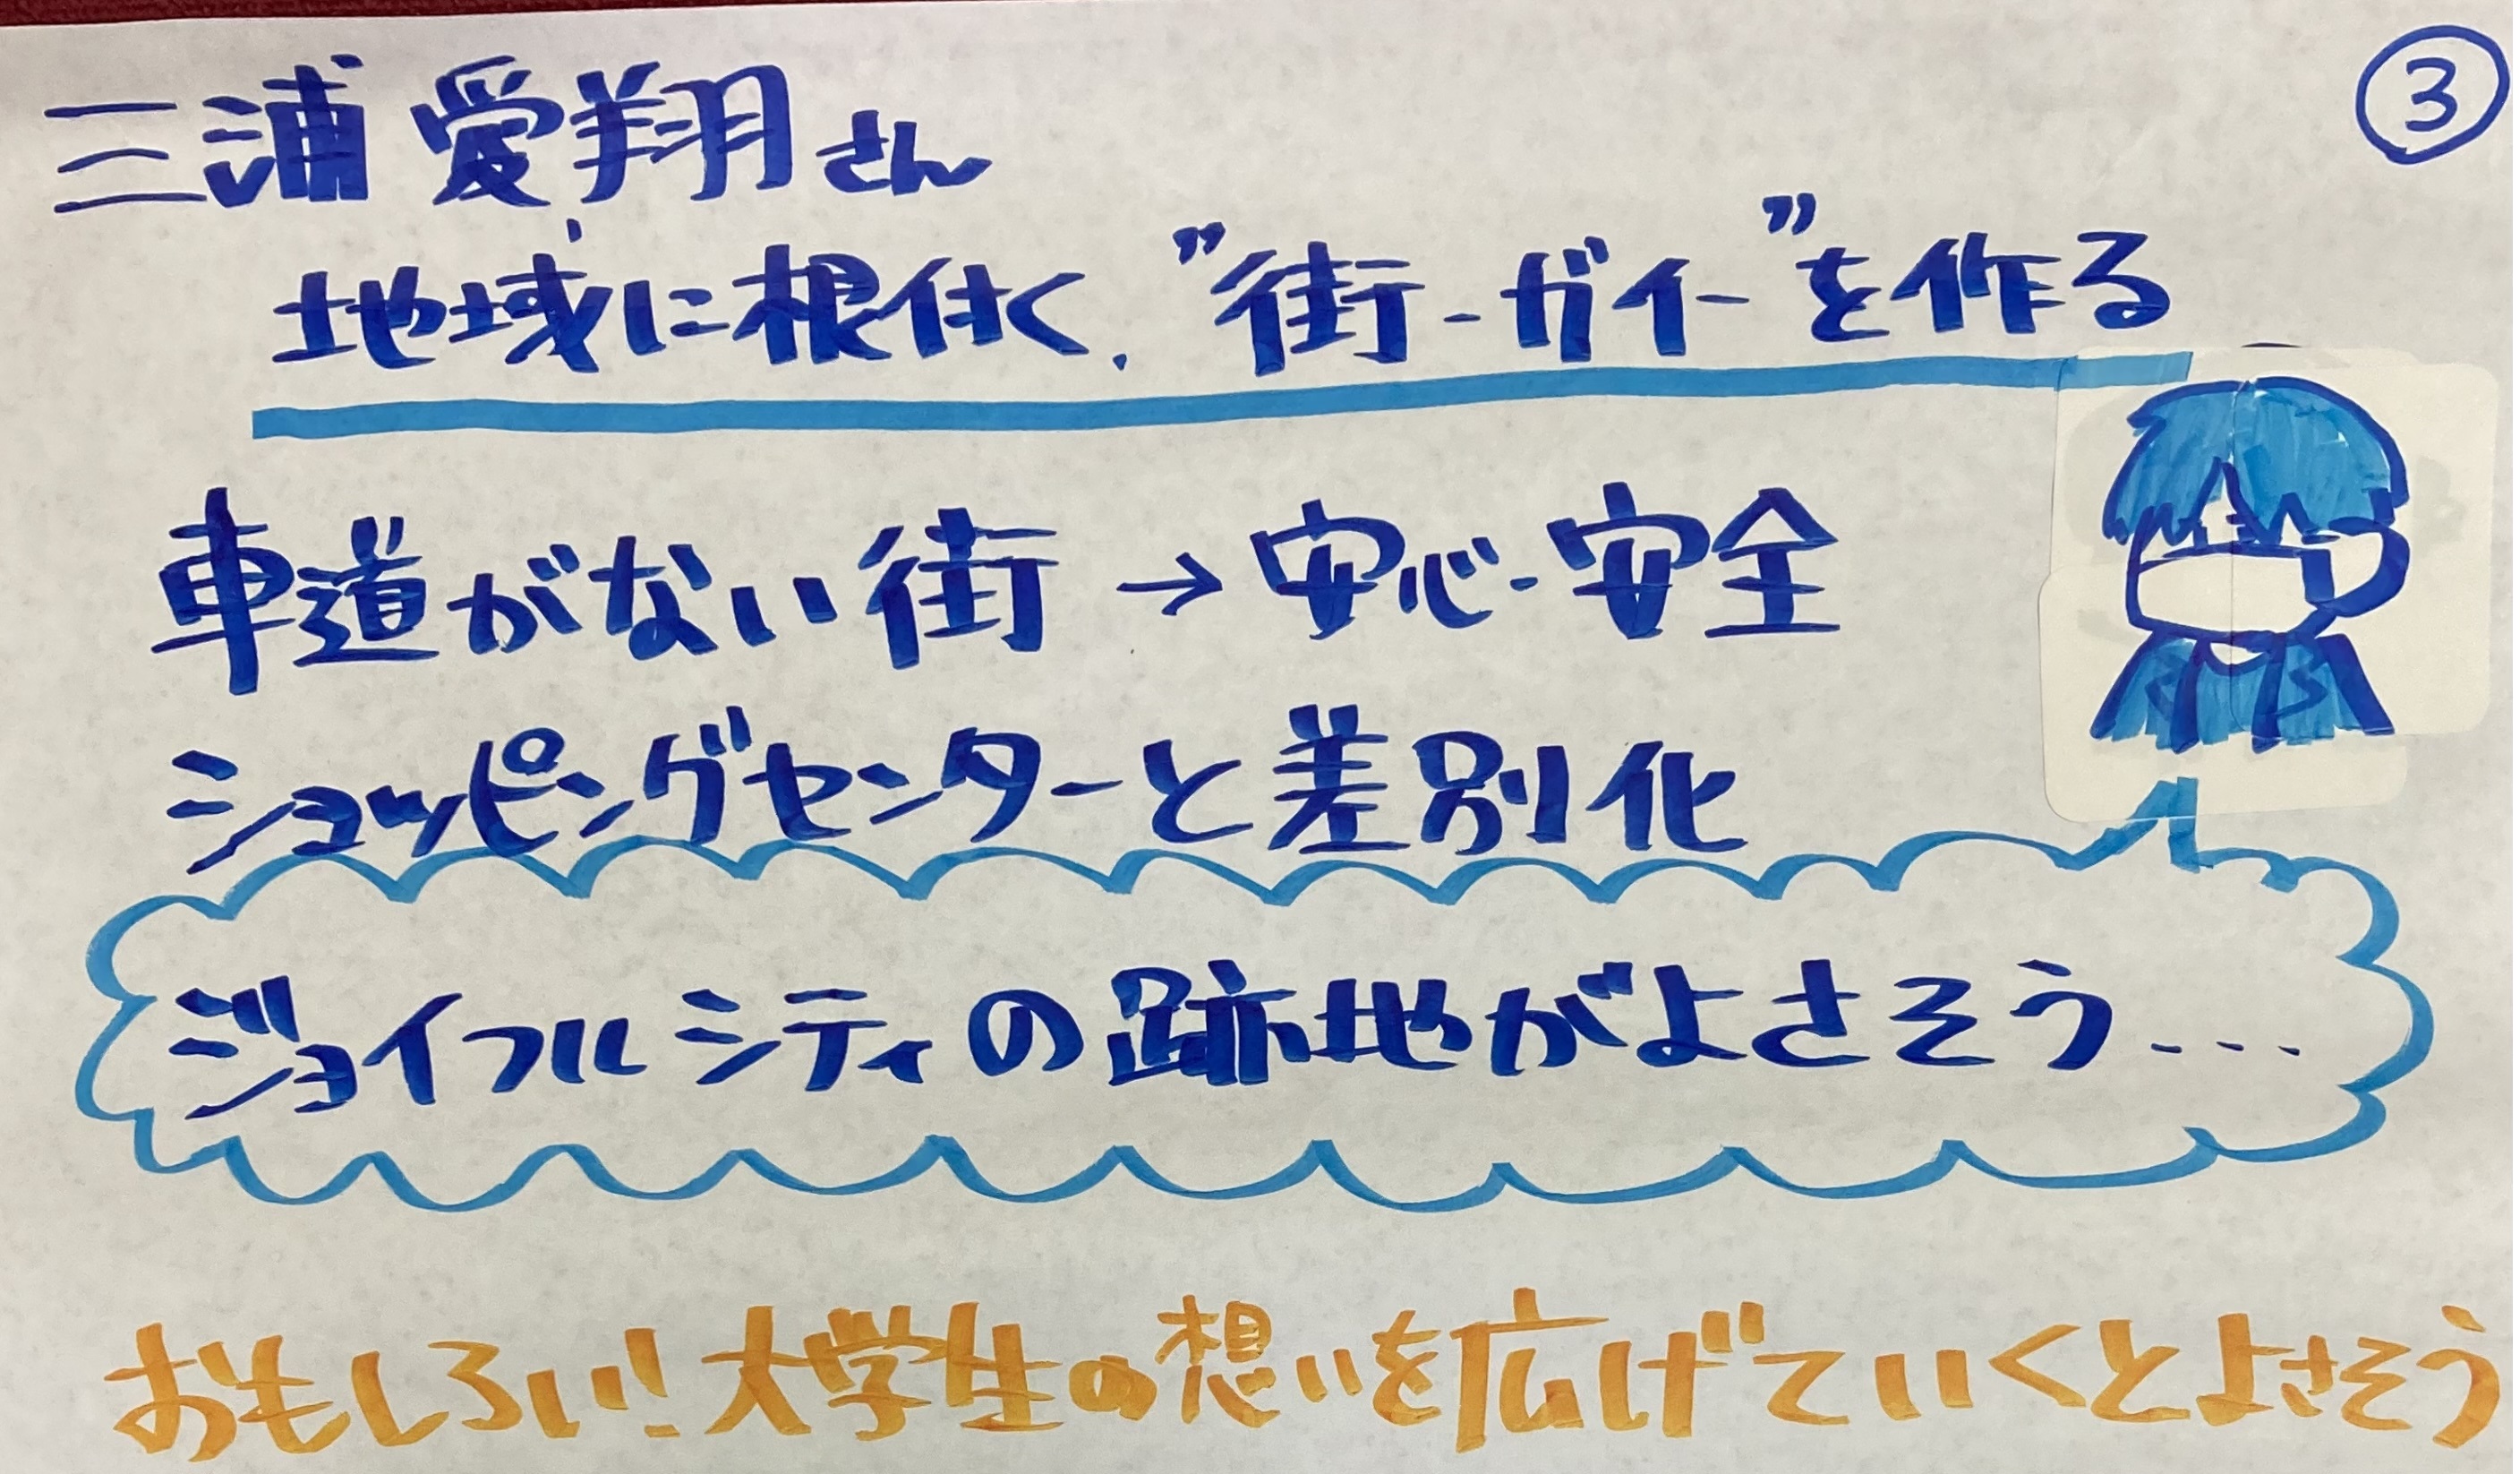 三浦 愛翔さん
③
地域に根付く、”街-ガイ-”を作る
車道がない街→安心・安全
ショッピングセンターと差別化
ジョイフルシティの跡地がよさそう...
おもしろい!大学生の想いを広げていくとよさそう